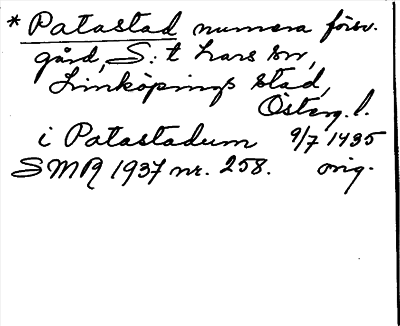 * Patastad numera försv.
gård, S:t Lars sn,
Linköpings stad,
Österg. l.
i Patastadum 9/7 1435
SMR 1937 nr. 258. orig.